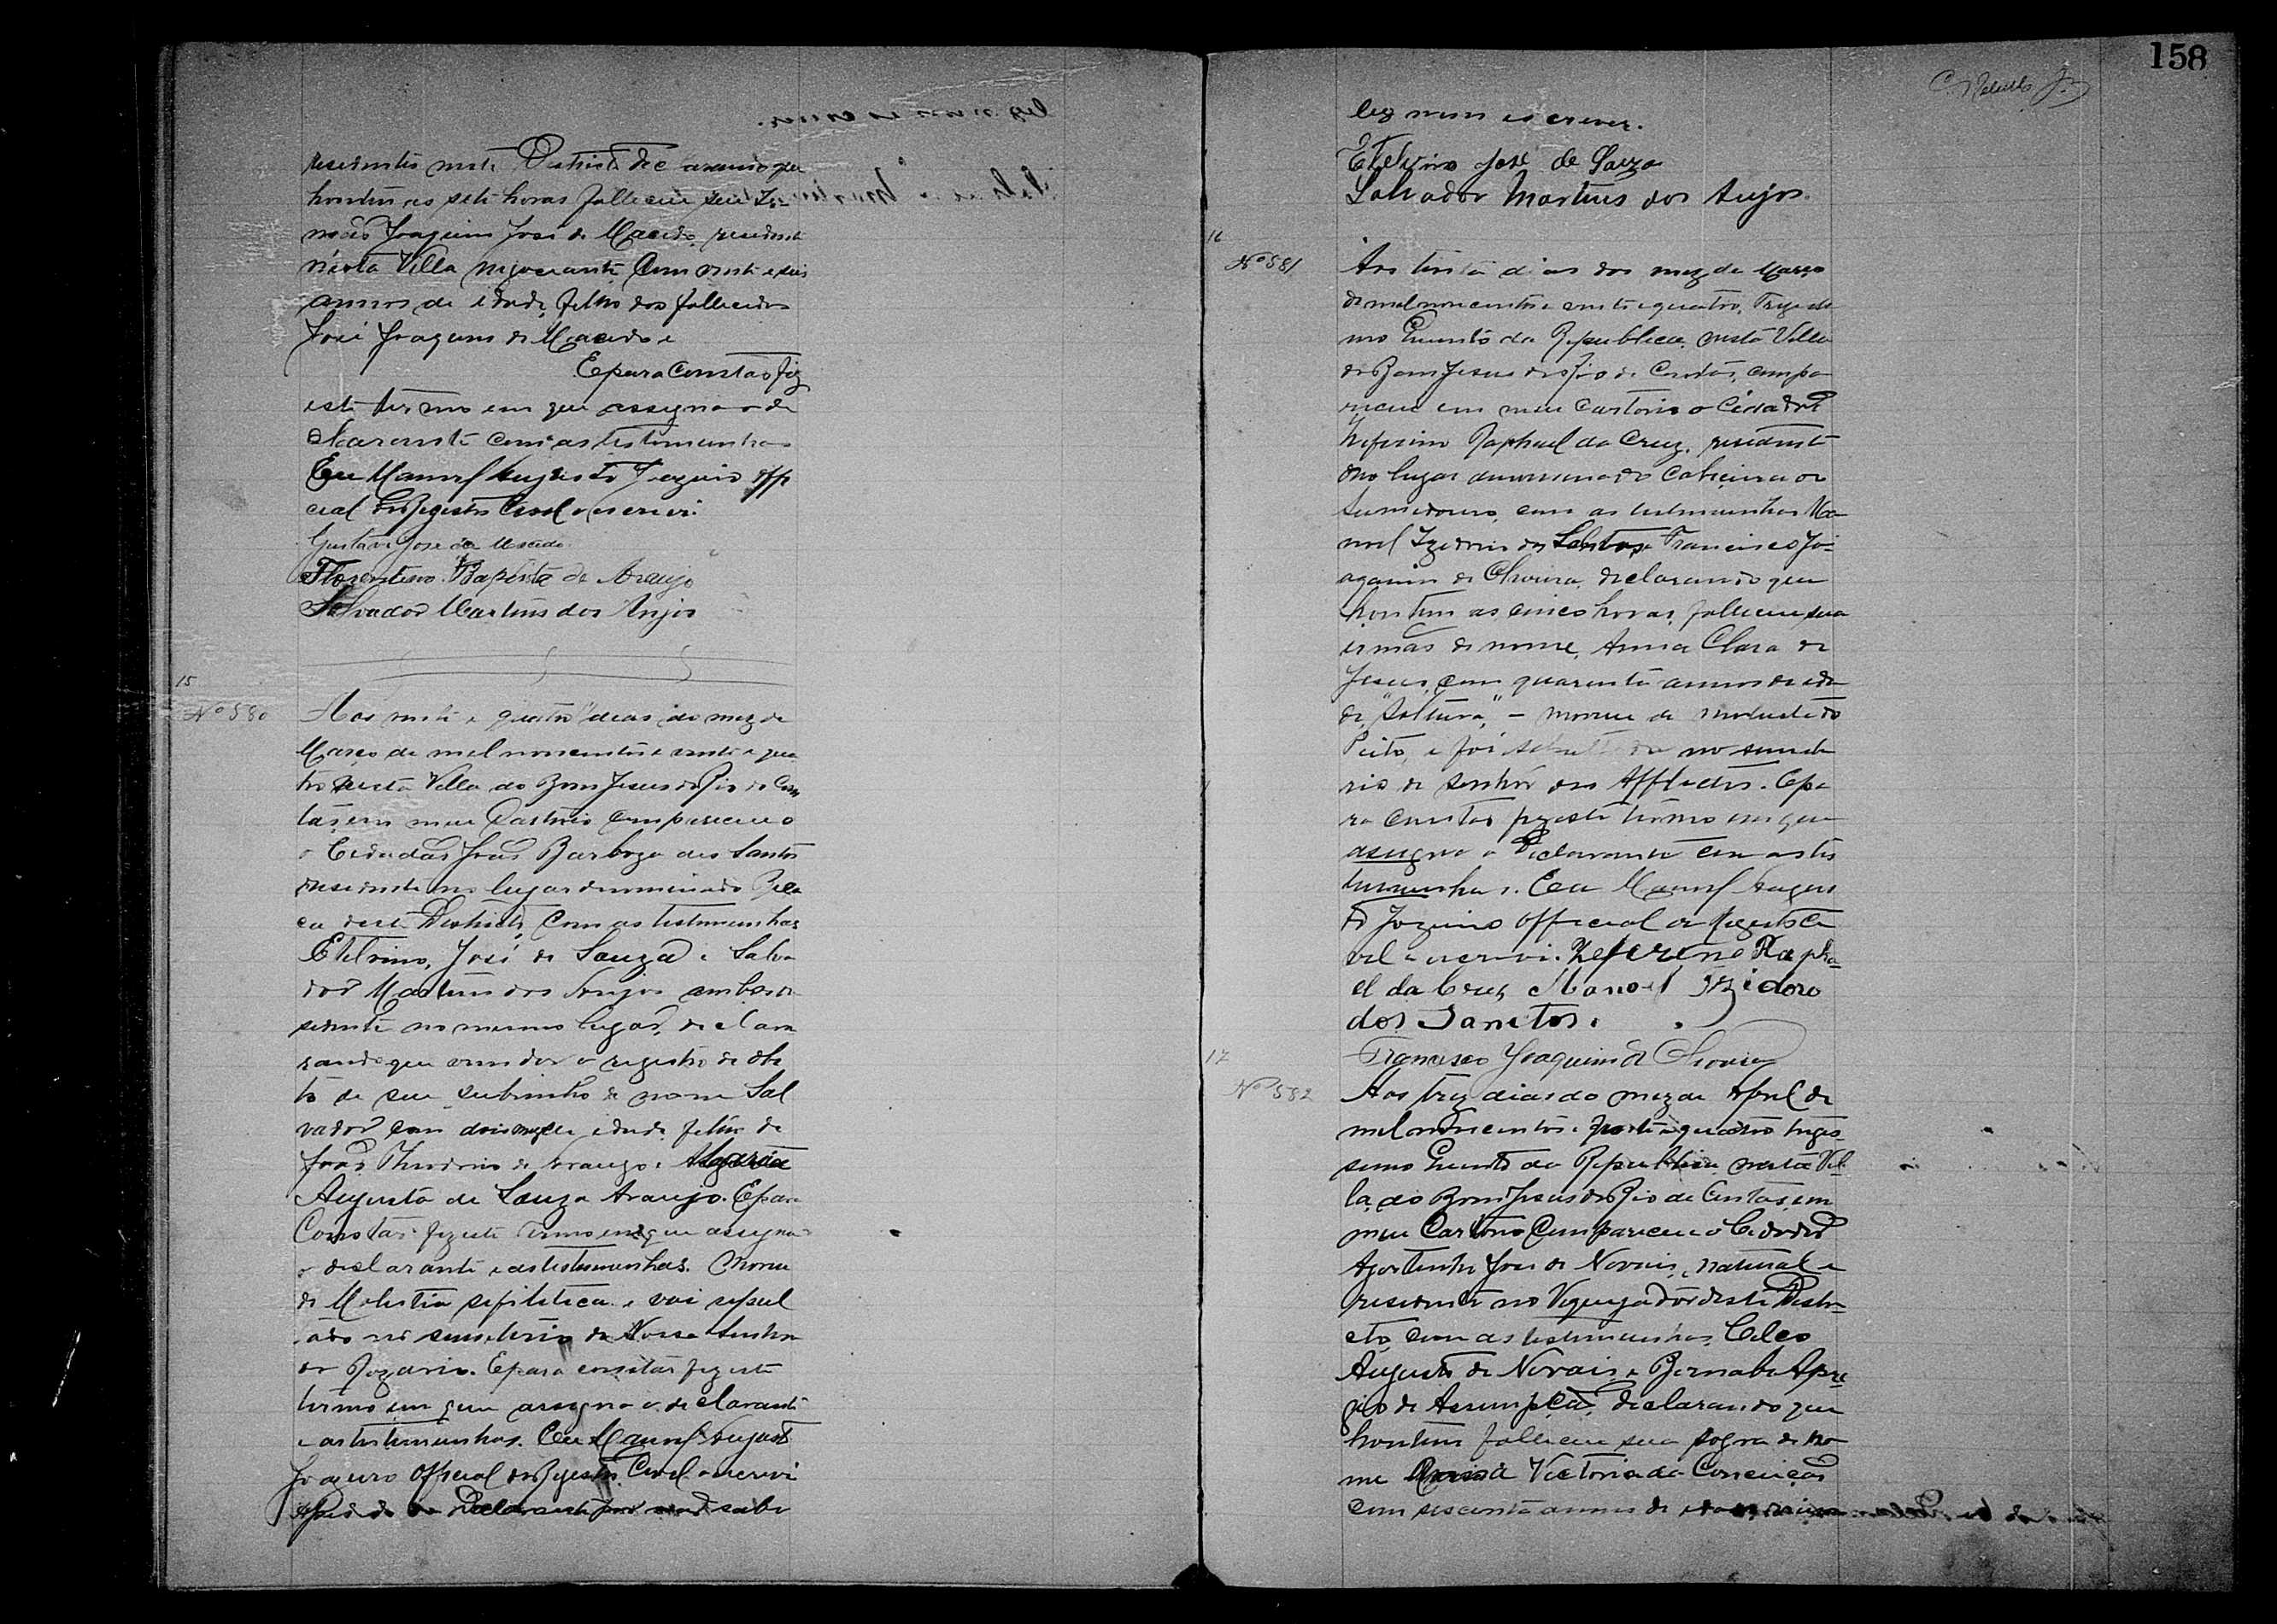 residentes neste Districto declarando que
hontem as sete horas falleceu seu Ir-
mão Joaquim José de Macedo, residente
nésta Villa negociante com vinte e seis
annos de idade, filho dos fallecidos
José Joaquim de Macedo e
E para constar fiz
este termo em que assigna o de
clarante com as testemunhas
Eu Manoel Augusto Joazeiro offi
cial do Registro Civil o escrevi.
Gustavo Jose de Macedo
Florentino Baptista de Araujo
Salvador Martins dos Anjos
15
Nº 580
Aos vinte e quatro dias do mez de
Março de mil novecentos e vinte e qua
tro nesta Villa do Bom Jesus do Rio de Con
tas, em meu Cartorio compareceu o
o Cidadão João Barboza dos Santos
residente no lugar denominado
deste Districto, com as testemunhas
Etelvino José de Souza e Salva
dor Martins dos Anjos ambos re
sidente no mesmo lugar, decla
rando que vem dar o registro de obi
to de seu subrinho de nome Sal
vador com dois mezes de idade, filho de
João Theodorio de Araujo e
Augusta de Souza Araujo. E para
Constar fiz este termo em que assigna
o declarante e as testemunhas. Morreu
de Molestia sifilitica e vai sepul
tado no semeterio de Nossa Senhora
do Rozario. E para constar fiz este
termo em que assigna o declarante
e as testemunhas. Eu Manoel Augusto
Joazeiro Official do Registro Civil o escrevi
a pedido do Declarante por não saber
158
ler nem escrever.
Etelvino José de Souza
Salvador Martins dos Anjos.
16
Nº 581
Aos trinta dias dos mez de Março
de mil novecentos e vinte e quatro, Trigesi
mo Quinto da Republica, nesta Villa
do Bom Jesus do Rio de Contas, compa
receu em meu Cartorio o Cidadão
Zeferino Raphael da Cruz, residente
no lugar denominado Cabeceira do
Sumidouro, com as testemunhas Ma
noel Izidorio dos Santos e Francisco Jo-
aquim de Oliveira, declarando que
hontem as cinco horas, falleceu sua
irmãs de nome, Anna Clara de
Jesus, com quarenta annos de ida
de, "Solteira," - morreu de molestia do
Peito, e foi sepultada no semete
rio de Senhor dos Afflictos. E pa
ra constar fiz este termo em que
assigna o Declarante com as tes
temunhas. Eu Manoel Augus
to Joazeiro Official do Registro Ci
vil o escrevi. Zeferino Rapha-
el da Cruz Manoel Izidoro
dos Sanctos.
Francisco Joaquim d Oliveira
17
Nº 582
Aos trez dias do mez de Abril de
mil novecentos e vinte e quatro Triges-
simo Quinto da Republica, nesta Vil-
la, do Bom Jesus do Rio de Contas, em
meu Cartorio Compareceu o Cidadão
Agostinho José de Novais, natural e
residente no deste Distri-
cto, com as testemunhas, Celco
Augusto de Novais, e Bernabe Apri-
gio de Assumpção, declarando que
hontem falleceu sua sogra de no
me Victoria da Conceição
com secenta annos de idade,